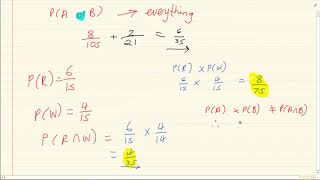 P(A or B) → everything
8/105 + 2/21 = 6/35
P(R) = 6/15
P(W) = 4/15
P(R∩W) = 6/15 × 4/14
= 4/35
P(R) × P(W)
6/15 × 4/15 = 8/75
P(A) × P(B) ≠ P(A∩B)
∴